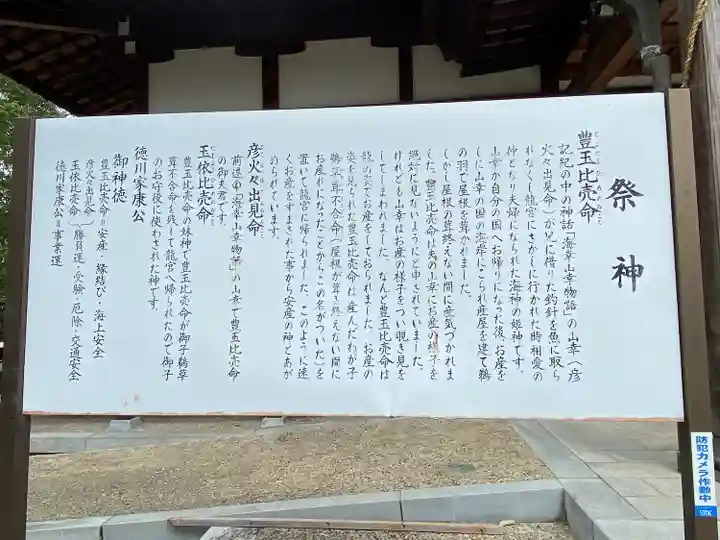 祭神
豊玉比売命
とよたまひめのみこと
記紀の中の神話「海幸山幸物語」の山幸(彦
火々出見命)が兄に借りた釣針を魚に取ら
れなくし龍宮にさがしに行かれた時相愛の
仲となり夫婦になられた海神の姫神です。
山幸が自分の国へお帰りになった後、お産を
しに山幸の国の海岸にこられ産屋を建て鵜
の羽で屋根を葺かれました。
しかし屋根の葺終えない間に産気づかれま
した。豊玉比売命は夫の山幸にお産の様子を
絶対に見ないようにと申されていました。
けれども山幸はお産の様子をつい覗き見を
してしまわれました。なんと豊玉比売命は
龍の姿でお産をしておられました。お産の
姿を見られた豊玉比売命は、産んだわが子
鵜葺草葺不合命(屋根が葺き終えない間に
お産れになったことからこの名がついた)を
置いて龍宮に帰られました。このように速
くお産をすまされた事から安産の神とあが
められています。
彦火々出見命
前述の「海幸山幸物語」の山幸で豊玉比売命
の御夫君です。
玉依比売命
豊玉比売命の妹神で豊玉比売命が御子鵜草
葺不合命を残して龍宮へ帰られたので御子
のお守役に使わされた神です。
徳川家康公
御神徳
豊玉比売命=安産・縁結び・海上安全
彦火々出見命
玉依比売命
勝負運・受験・厄除・交通安全
徳川家康公=事業運
防犯カメラ作動中